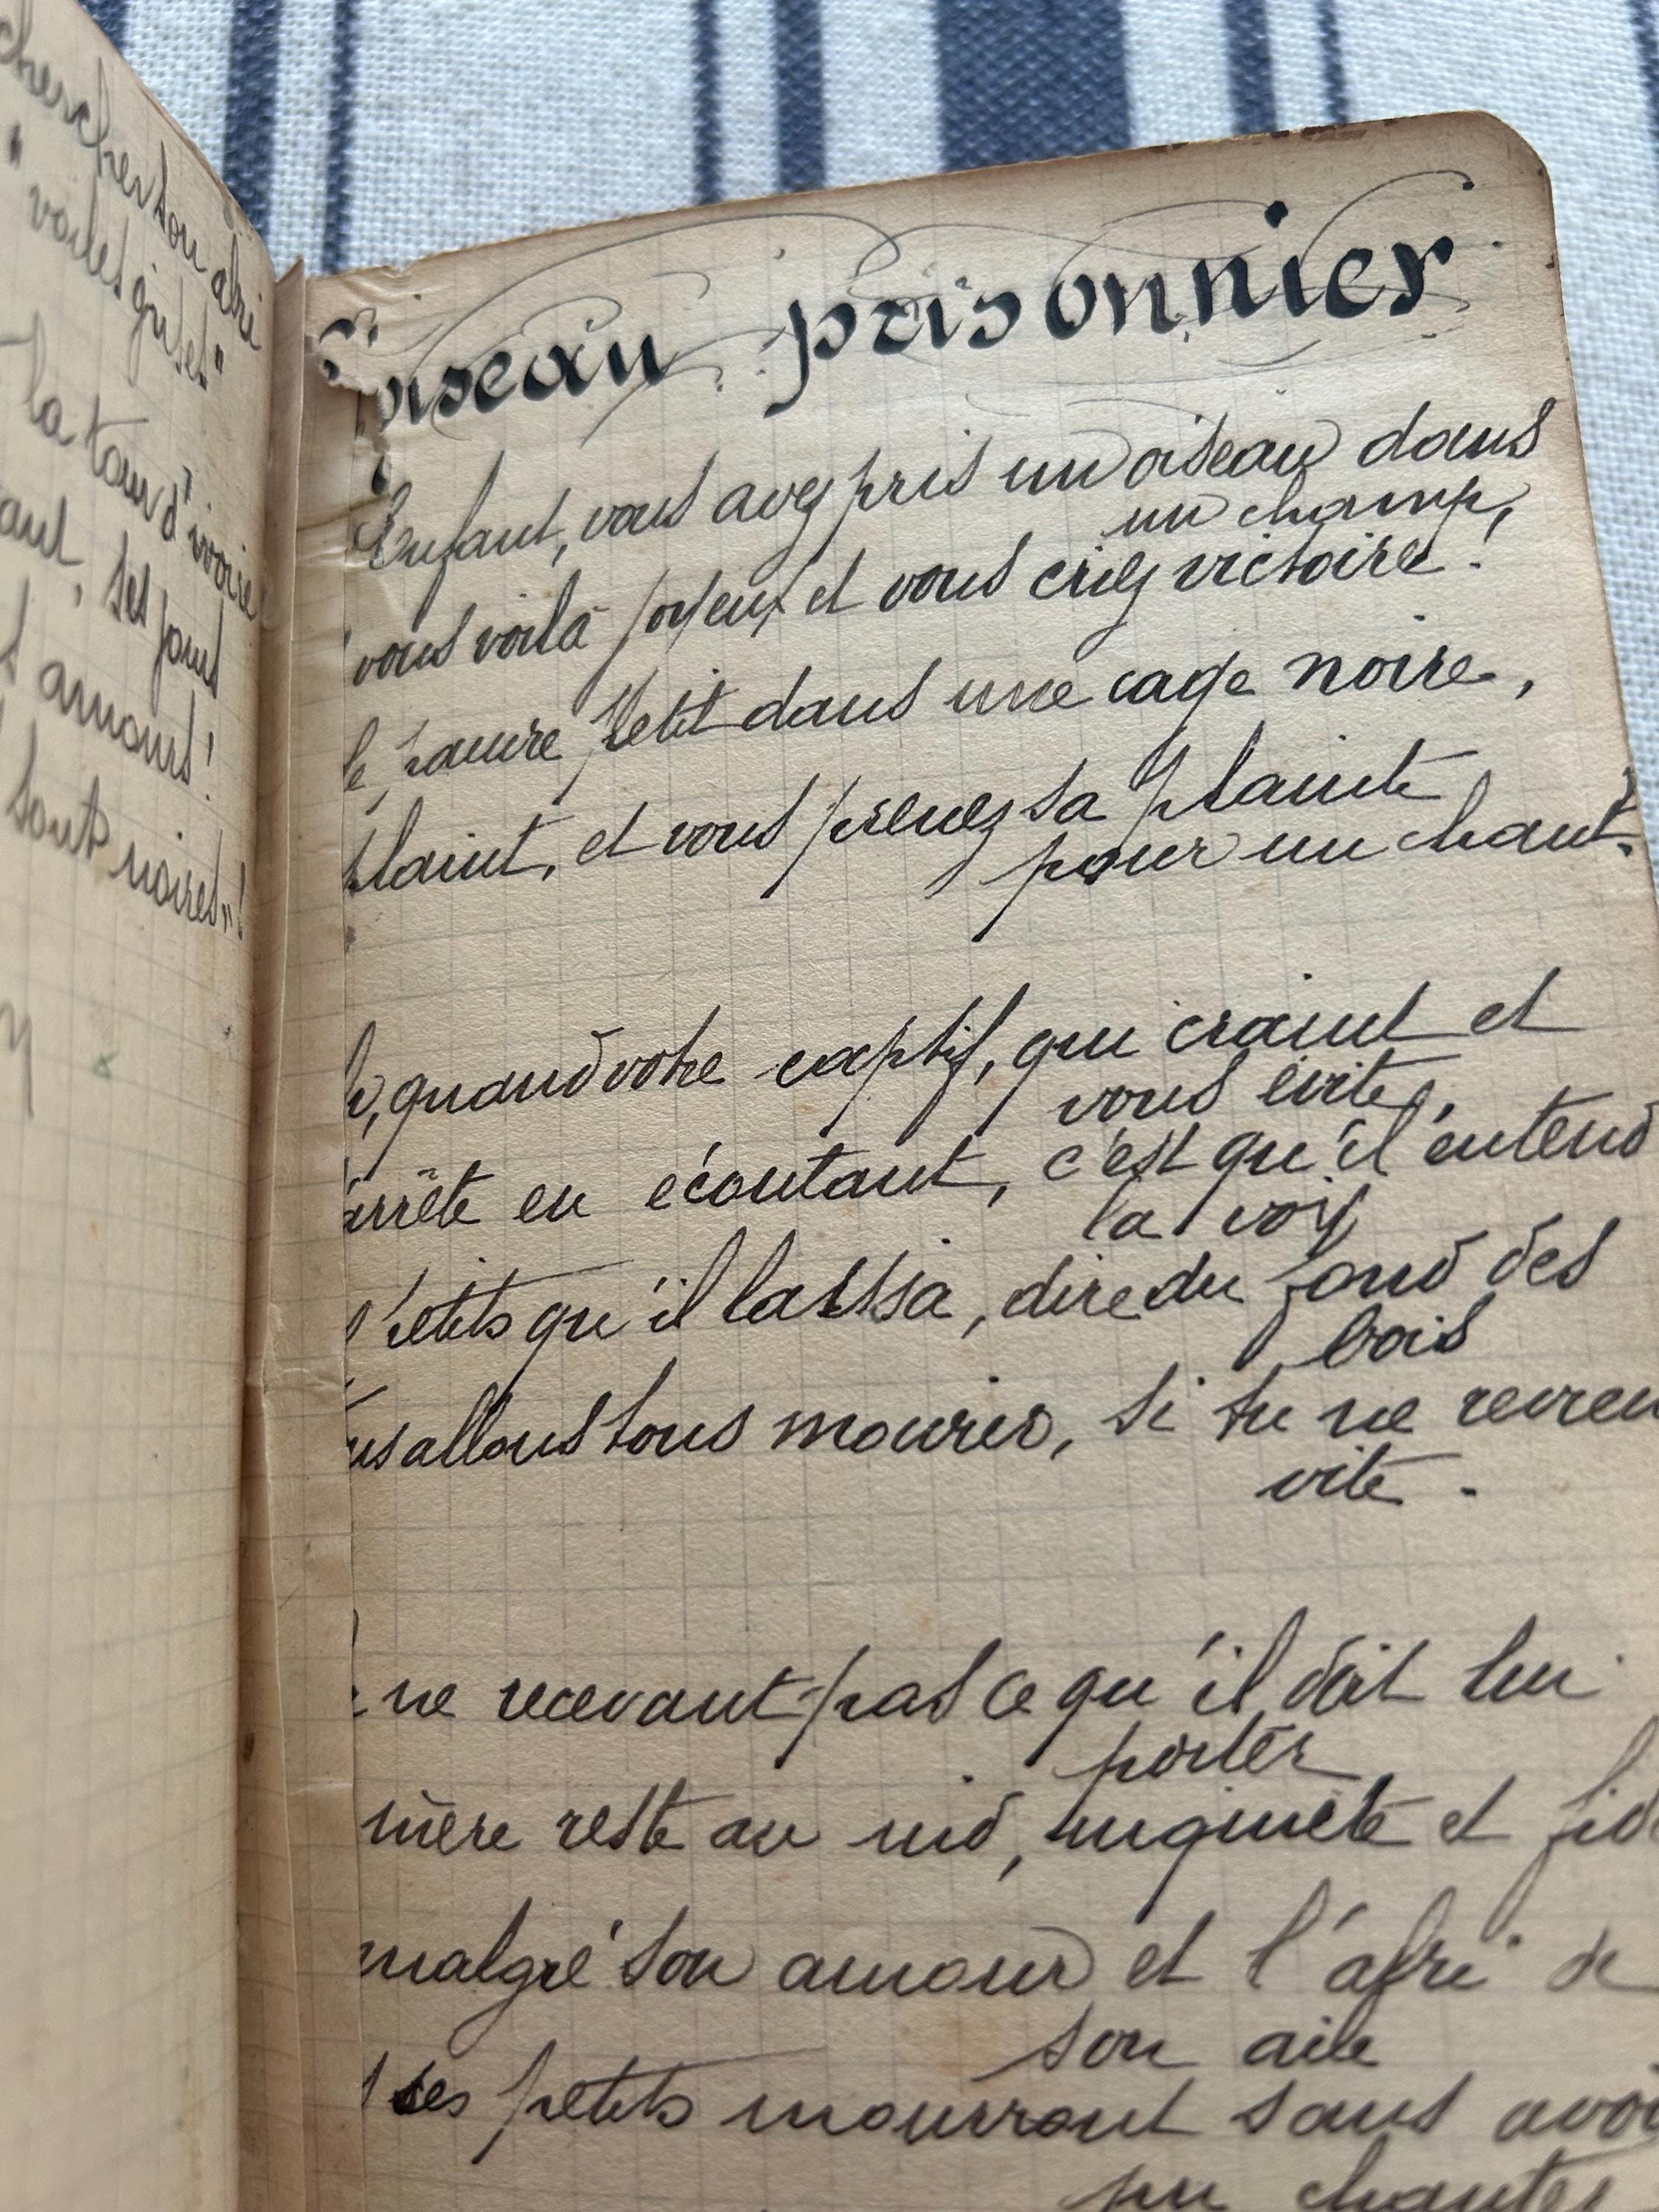 chercher son abri
voiles qu'et"
la tour d'ivoire
ant, ses jours
t amours!
sont noires"!
oiseau prisonnier
Enfant, vous avez pris un oiseau dans
un champ,
vous voilà joyeux et vous criez victoire!
le pauvre petit dans une cage noire,
plaint, et vous prenez sa plainte
pour un chant.
quand votre captif, qui craint et
vous évite,
arrête en écoutant, c'est qu'il entend
la voix
petits qu'il laissa, dire du fond des
bois
us allons tous mourir, si tu ne revien
vite.
ne recevant pas ce qu'il doit lui
porter
mère reste au nid, inquiète et fid
malgré son amour et l'abri de
son aile
ses petits mourront sans avoi
pu chanter